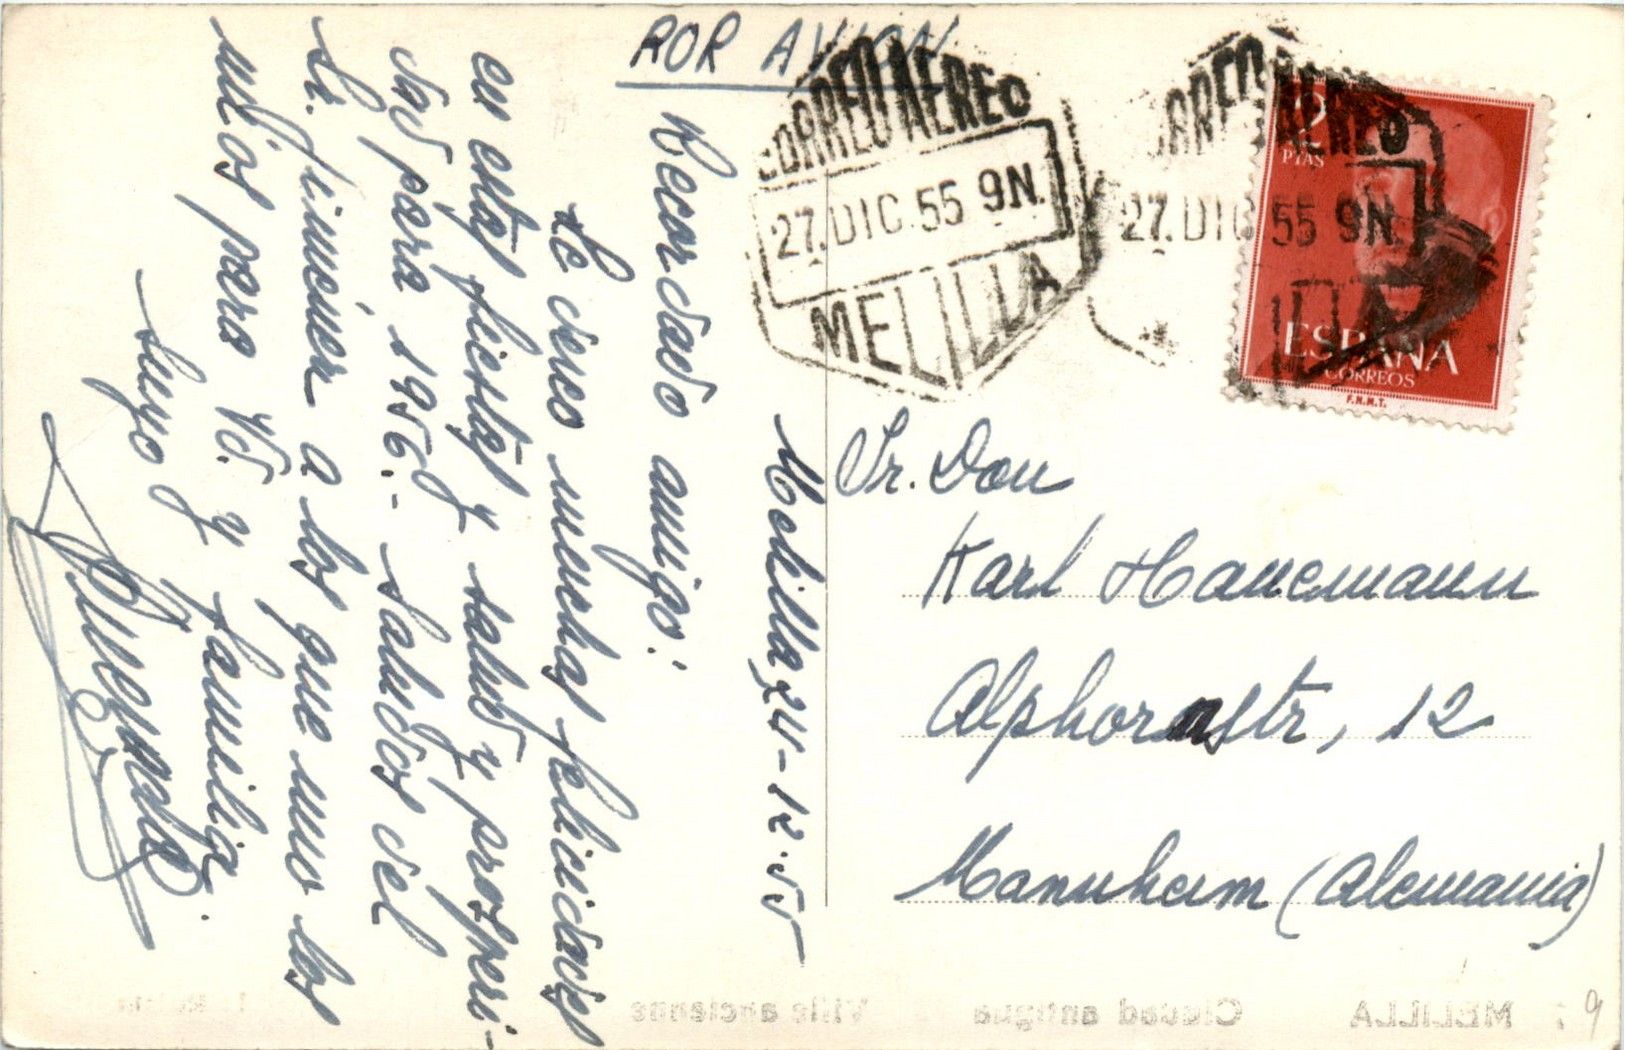 POR AVION
CORREO AEREO
27. DIC. 55 9N.
MELILLA
CORREO AEREO
27. DIC 55 9N.
2
PTAS
ESPAÑA
CORREOS
F.N.M.T.
Melilla, 24-12-55
Recordado amigo:
Le deseo muchas felicidades
en estas fiestas y salud y prosperi-
dad para 1956.- Saludos del
Sr. Jiménez a los que uno los
mios para Vd. y familia.
Suyo
Sr. Don
Karl Hanemann
Alphornstr, 12
Mannheim (Alemania)
MELILLA Ciudad antigua Ville ancienne
9